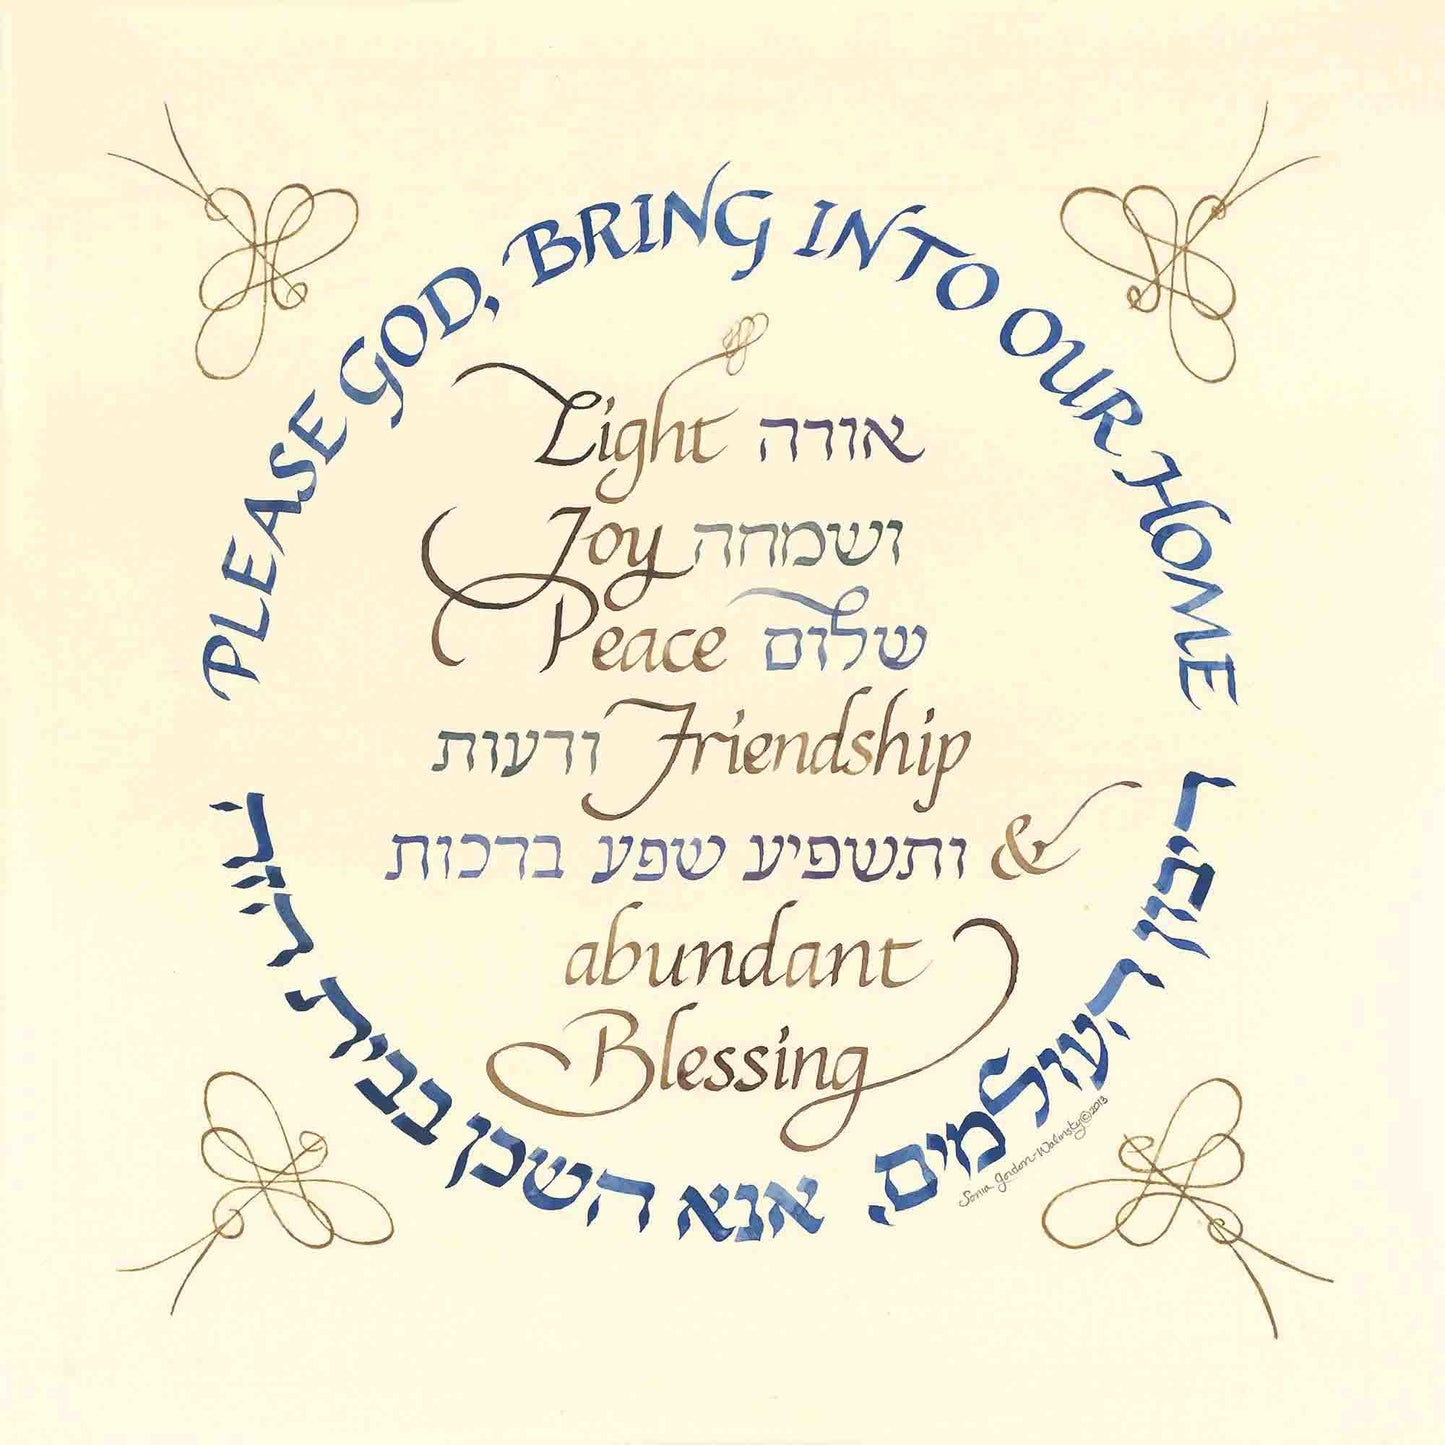 PLEASE GOD, BRING INTO OUR HOME
Light אורה
Joy ושמחה
Peace שלום
ורעות Friendship
& ותשפיע שפע ברכות
abundant
Blessing
ריבון העולמים, אנא השכן בבית
Sonia Gordon-Walinsky © 2013